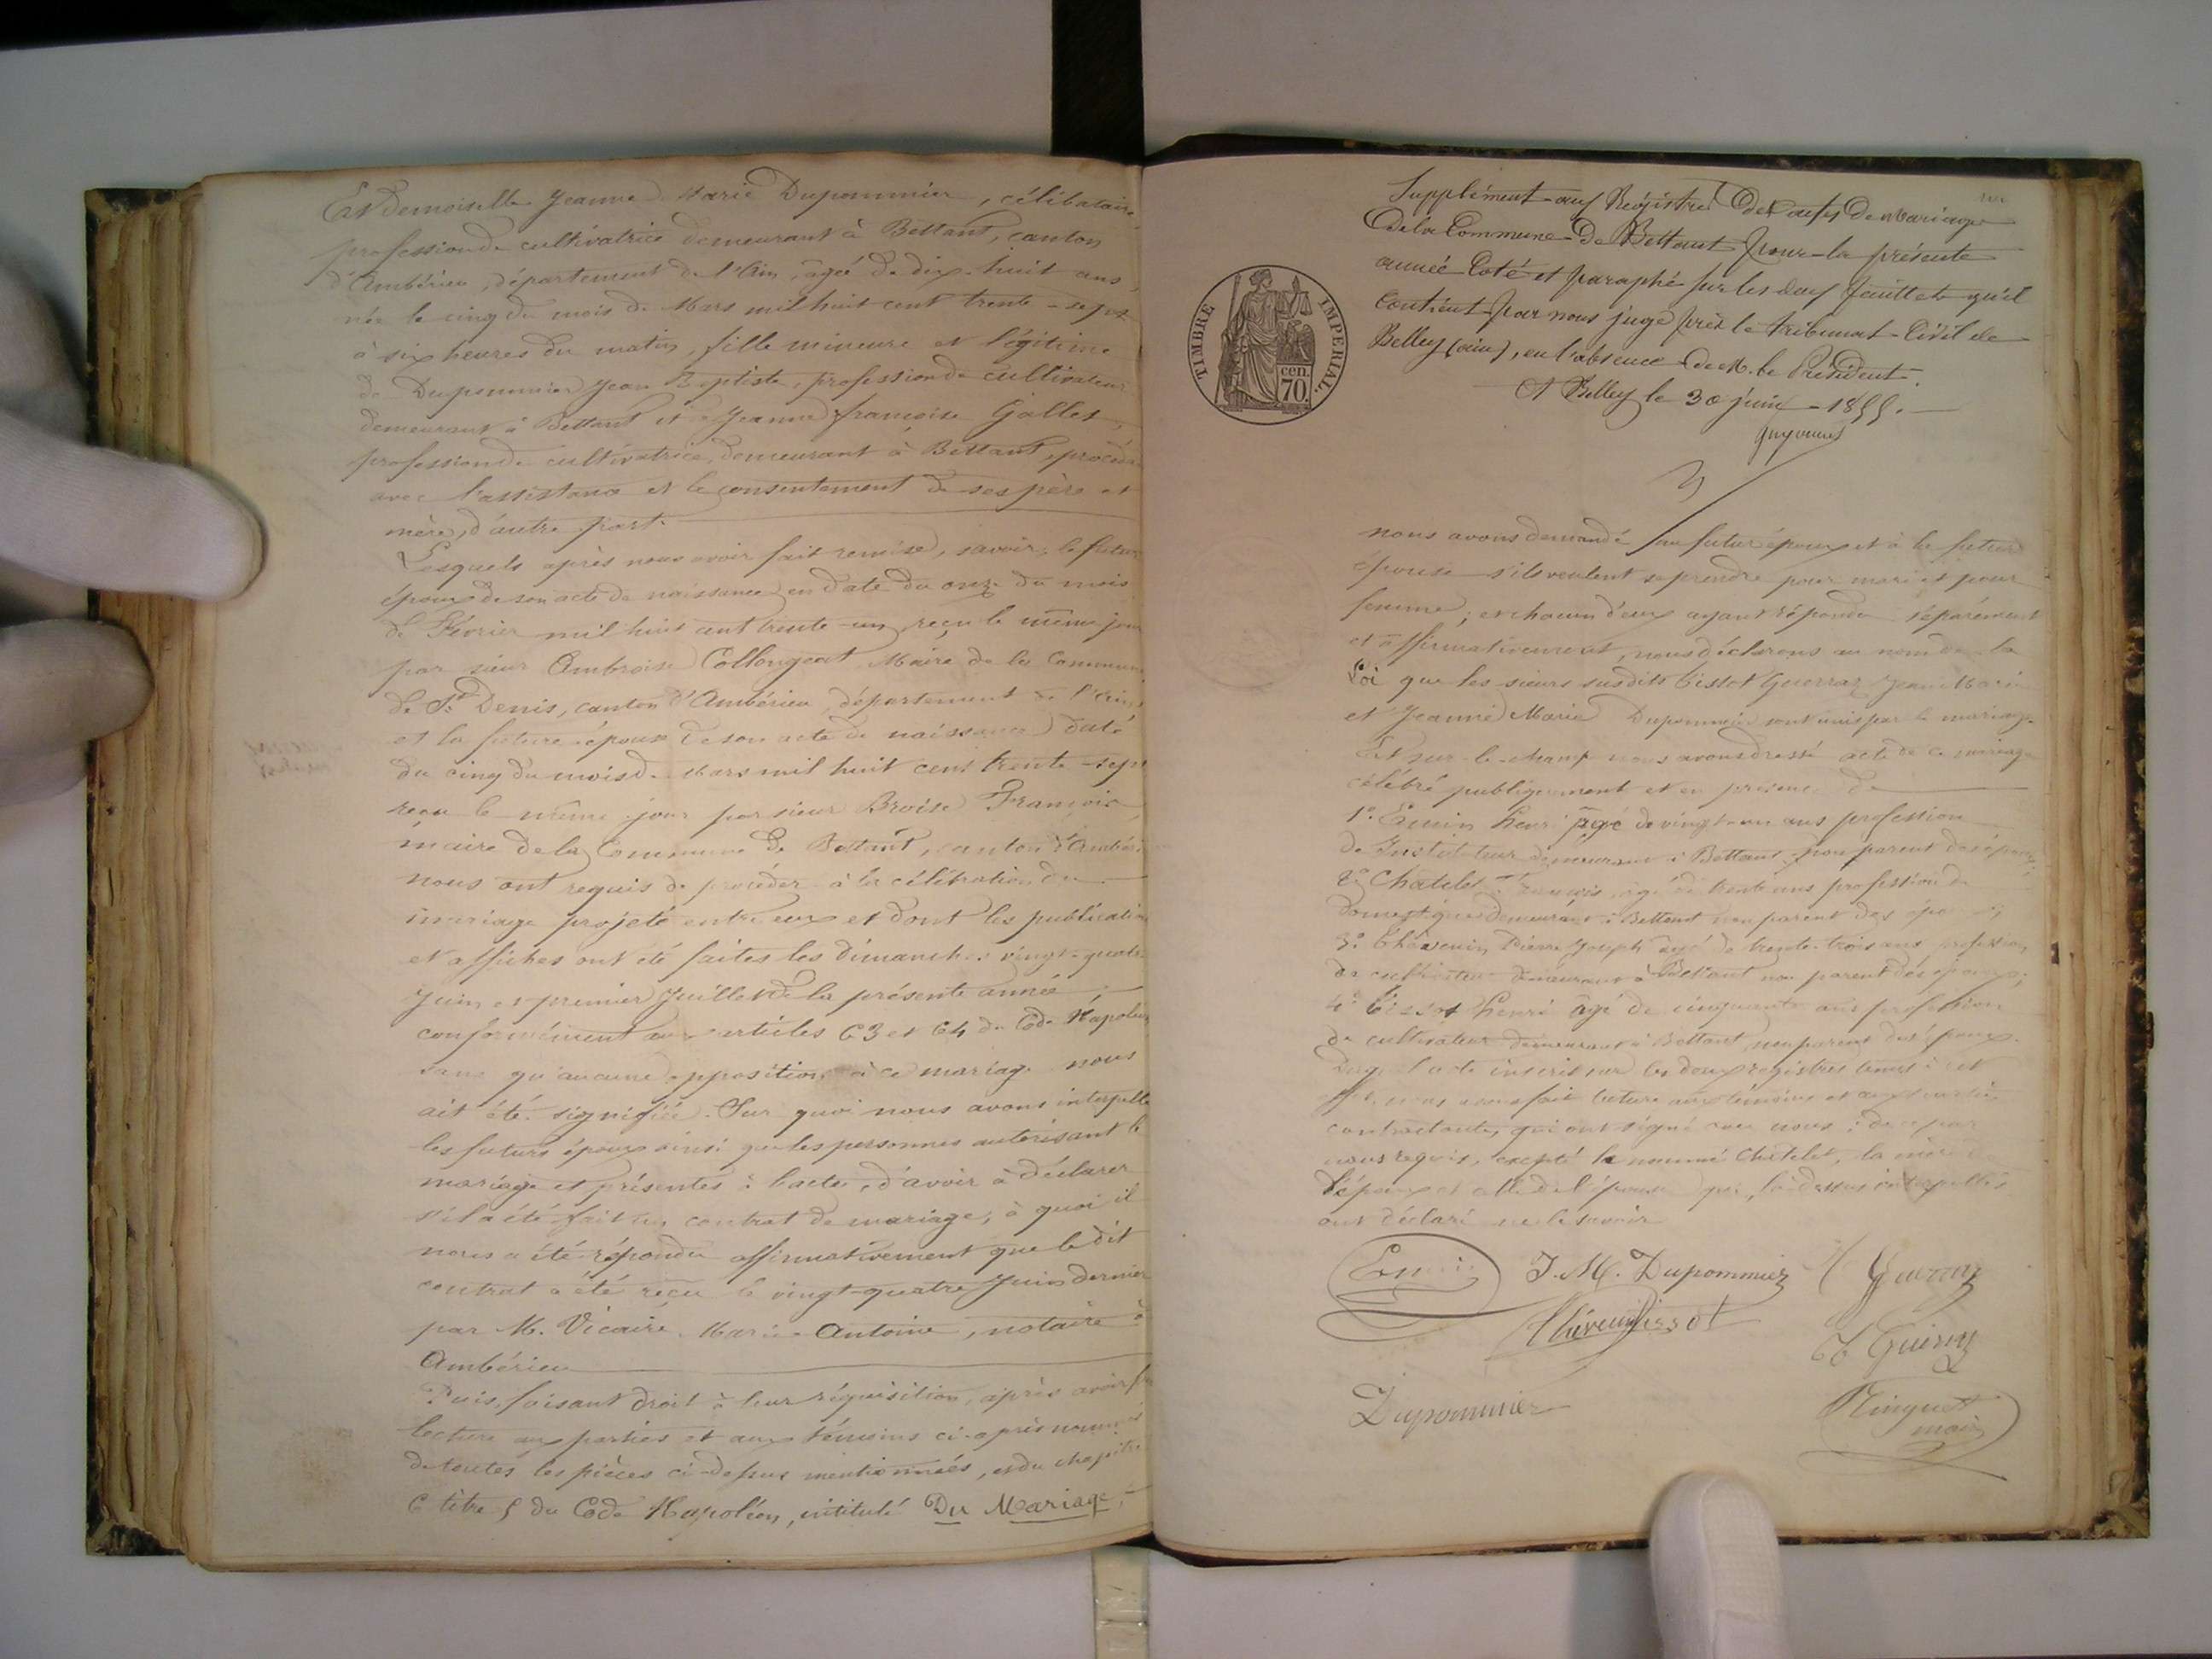 Et Demoiselle Jeanne Marie Dupommier, célibataire,
profession de cultivatrice demeurant à Bettant, canton
d'Ambérieu, département de l'Ain, âgée de dix-huit ans,
née le cinq du mois de Mars mil huit cent trente-sept
à six heures du matin, fille mineure et légitime
de Dupommier Jean Baptiste, profession de cultivateur
demeurant à Bettant et Jeanne françoise Gallet,
profession de cultivatrice, demeurant à Bettant, procédant
avec l'assistance et le consentement de ses père et
mère, d'autre part.
Lesquels après nous avoir fait remise, savoir, le futur
époux de son acte de naissance en date du onze du mois
de Février mil huit cent trente-un, reçu le même jour
par sieur Ambroise Collongeat Maire de la Commune
de St Denis, canton d'Ambérieu, département de l'Ain,
et la future épouse de son acte de naissance daté
du cinq du mois de Mars mil huit cent trente-sept
reçu le même jour par sieur Broise François
maire de la Commune de Bettant, canton d'Ambérieu
nous ont requis de procéder à la célébration du
mariage projeté entre eux et dont les publications
et affiches ont été faites les dimanches vingt-quatre
Juin et premier Juillet de la présente année,
conformément aux articles 63 et 64 du Code Napoléon
sans qu'aucune opposition à ce mariage nous
ait été signifiée. Sur quoi nous avons interpellé
les futurs époux ainsi que les personnes autorisant le
mariage et présentes à l'acte, d'avoir à déclarer
s'il a été fait un contrat de mariage, à quoi il
nous a été répondu affirmativement que le dit
contrat a été reçu le vingt-quatre Juin dernier
par M. Vicaire Marie-Antoine, notaire à
Ambérieu
Puis, faisant droit à leur réquisition, après avoir
lecture aux parties et aux témoins ci-après nommés
de toutes les pièces ci-dessus mentionnées, et du chapitre
6 titre 5 du Code Napoléon, intitulé Du Mariage,
Supplément aux Régistres des actes de mariage
de la Commune de Bettant pour la présente
année Coté et paraphé sur les deux feuillets qu'il
Contient par nous juge près le tribunal Civil de
Belley (ain), en l'absence de M. le Président.
A Belley le 30 juin 1855.
TIMBRE IMPERIAL.
cen. 70.
nous avons demandé au futur époux et à la future
épouse s'ils veulent se prendre pour mari et pour
femme; et chacun d'eux ayant répondu séparément
et affirmativement, nous déclarons au nom de la
Loi que les sieurs susdits Bissot Guerraz Jean Marie
et Jeanne Marie Dupommier sont unis par le mariage.
Et sur-le-champ nous avons dressé acte de ce mariage
célébré publiquement et en présence de
1º. Emin henri âgé de vingt-un ans profession
de Instituteur demeurant à Bettant, non parent des époux;
2º. Chatelet François, âgé de trente ans profession de
domestique demeurant à Bettant non parent des époux;
3º. Thévenin Pierre Joseph âgé de trente-trois ans profession
de cultivateur demeurant à Bettant non parent des époux;
4º Bissot henri âgé de cinquante ans profession
de cultivateur demeurant à Bettant, non parent des époux.
Duquel acte inscrit sur les deux registres tenus à cet
effet, nous avons fait lecture aux témoins et aux parties
contractantes, qui ont signé avec nous, de ce par
nous requis, excepté le nommé Chatelet, la mère de
l'époux et celle de l'épouse qui, là-dessus interpellés
ont déclaré ne le savoir
Emin J. M. Dupommier Guerraz
Thévenin Bissot
Guerraz
Dupommier
Ringuet
maire